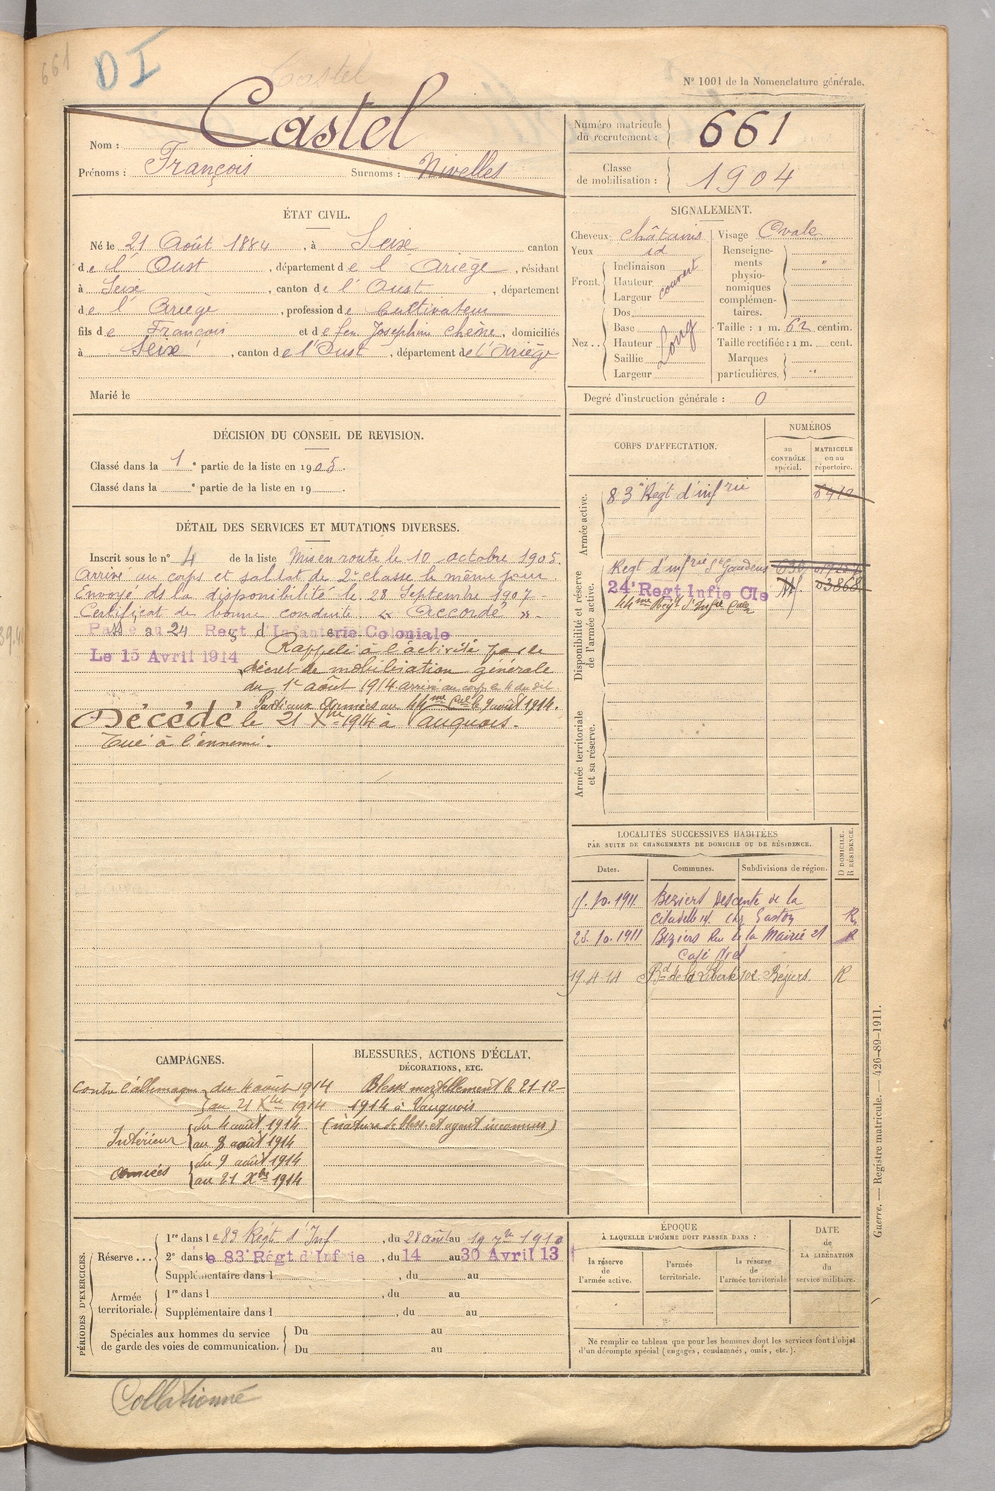 661
D I
Castel
N° 1001 de la Nomenclature générale.
Nom : Castel
Prénoms : François Surnoms : Nivelles
Numéro matricule du recrutement : 661
Classe de mobilisation : 1904
ÉTAT CIVIL.
Né le 21 Août 1884, à Seix canton
de l'Oust, département de l'Ariège, résidant
à Seix, canton de l'Oust, département
de l'Ariège, profession de Cultivateur
fils de François et de feu Joséphine Chêne, domiciliés
à Seix, canton de l'Oust, département de l'Ariège
Marié le
SIGNALEMENT.
Cheveux châtains
Yeux id
Front. Inclinaison
Hauteur couvert
Largeur
Nez.. Dos
Base
Hauteur Long
Saillie
Largeur
Visage Ovale
Renseignements physionomiques complémentaires. "
Taille : 1 m. 62 centim.
Taille rectifiée : 1 m. cent.
Marques particulières. "
Degré d'instruction générale : 0
DÉCISION DU CONSEIL DE REVISION.
Classé dans la 1e partie de la liste en 1905.
Classé dans la e partie de la liste en 19
DÉTAIL DES SERVICES ET MUTATIONS DIVERSES.
Inscrit sous le n° 4 de la liste Mis en route le 10 octobre 1905.
Arrivé au corps et soldat de 2e classe le même jour.
Envoyé ds la disponibilité le 28 Septembre 1907.
Certificat de bonne conduite "Accordé".
Passé au 24 Regt d'Infanterie Coloniale
Le 15 Avril 1914 Rappelé à l'activité par le
décret de mobilisation générale
du 1er août 1914 arrivé au corps le 4 du dit
Parti aux Armées au 44me Cal le 9 août 1914.
Décédé le 21 Xbre 1914 à Vauquois.
Tué à l'ennemi.
CORPS D'AFFECTATION.
NUMÉROS
au CONTRÔLE spécial.
MATRICULE ou au répertoire.
Armée active.
83e Regt d'infrie 6412
Disponibilité et réserve de l'armée active.
Regt d'infrie St Gaudens
24e Regt Infie Cle 03868
44me Regt d'Infie Cale
Armée territoriale et sa réserve.
LOCALITÉS SUCCESSIVES HABITÉES
PAR SUITE DE CHANGEMENTS DE DOMICILE OU DE RÉSIDENCE.
Dates. Communes. Subdivisions de région. D DOMICILE. R RÉSIDENCE.
15.10.1911 Béziers Descente de la
Citadelle 14. chz Gaston R
25.10.1911 Béziers Rue de la Mairie 21 R
Café
19 4 14 Bd de la Liberté 102 Béziers R
CAMPAGNES.
Contre l'allemagne du 4 août 1914
au 21 Xbre 1914
Intérieur du 4 août 1914
au 8 août 1914
Armées du 9 août 1914
au 21 Xbre 1914
BLESSURES, ACTIONS D'ÉCLAT, DÉCORATIONS, ETC.
Blessé mortellement le 21-12-
1914 à Vauquois
(nature de bless. et agent inconnus)
PÉRIODES D'EXERCICES.
Réserve... 1re dans le 83 Regt d'Inf, du 28 août au 19 7bre 1910
2e dans le 83e Régt d'Infrie, du 14 au 30 Avril 13
Supplémentaire dans l , du au
Armée territoriale. 1re dans l , du au
Supplémentaire dans l , du au
Spéciales aux hommes du service de garde des voies de communication. Du au
Du au
ÉPOQUE
À LAQUELLE L'HOMME DOIT PASSER DANS :
la réserve de l'armée active.
l'armée territoriale.
la réserve de l'armée territoriale
DATE de LA LIBÉRATION du service militaire.
Ne remplir ce tableau que pour les hommes dont les services font l'objet
d'un décompte spécial (engagés, condamnés, omis, etc.).
Guerre. — Registre matricule. — 426-89-1911.
Collationné